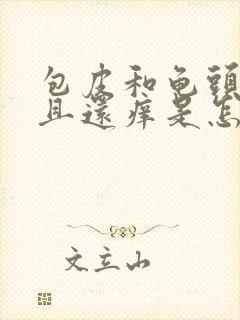 包皮和龟頭
且還痒是怎
文立山